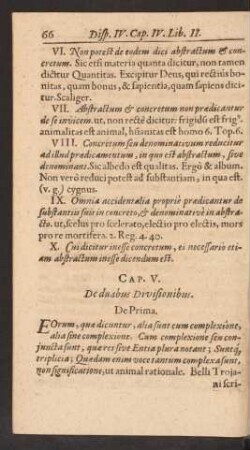 66 Disp. IV. Cap. IV. Lib. II.
VI. Non potest de eodem dici abstractum & con-
cretum. Sic etsi materia quanta dicitur, non tamen
dicitur Quantitas. Excipitur Deus, qui rectius bo-
nitas, quam bonus, & sapientia, quam sapiens dici-
tur. Scaliger.
VII. Abstractum & concretum non prædicantur
de se invicem. ut, non recte dicitur: frigidū est frigꝰ.
animalitas est animal, hūanitas est homo 6. Top. 6.
VIII. Concretum seu denominativum reducitur
ad illud prædicamentum, in quo est abstractum, sive
denominans. Sic albedo est qualitas. Ergò & album.
Non verò reduci potest ad substantiam, in qua est.
(v. g.) cygnus.
IX. Omnia accidentalia propriè prædicantur de
substantiis suis in concreto, & denominativè in abstra-
cto. ut, scelus pro scelerato, electio pro electis, mors
pro re mortifera. 2. Reg. 4. 40.
X. Cui dicitur inesse concretum, ei necessario eti-
am abstractum inesse dicendum est.
CAP. V.
De duabus Divisionibus.
De Prima.
EOrum, quæ dicuntur, alia sunt cum complexione,
alia sine complexione. Cum complexione seu con-
juncta sunt, quæ res sive Entia plura notant; Suntq́;
triplicia; Quædam enim voce tantum complexa sunt,
non significatione, ut animal rationale. Belli Troja-
ni scri-